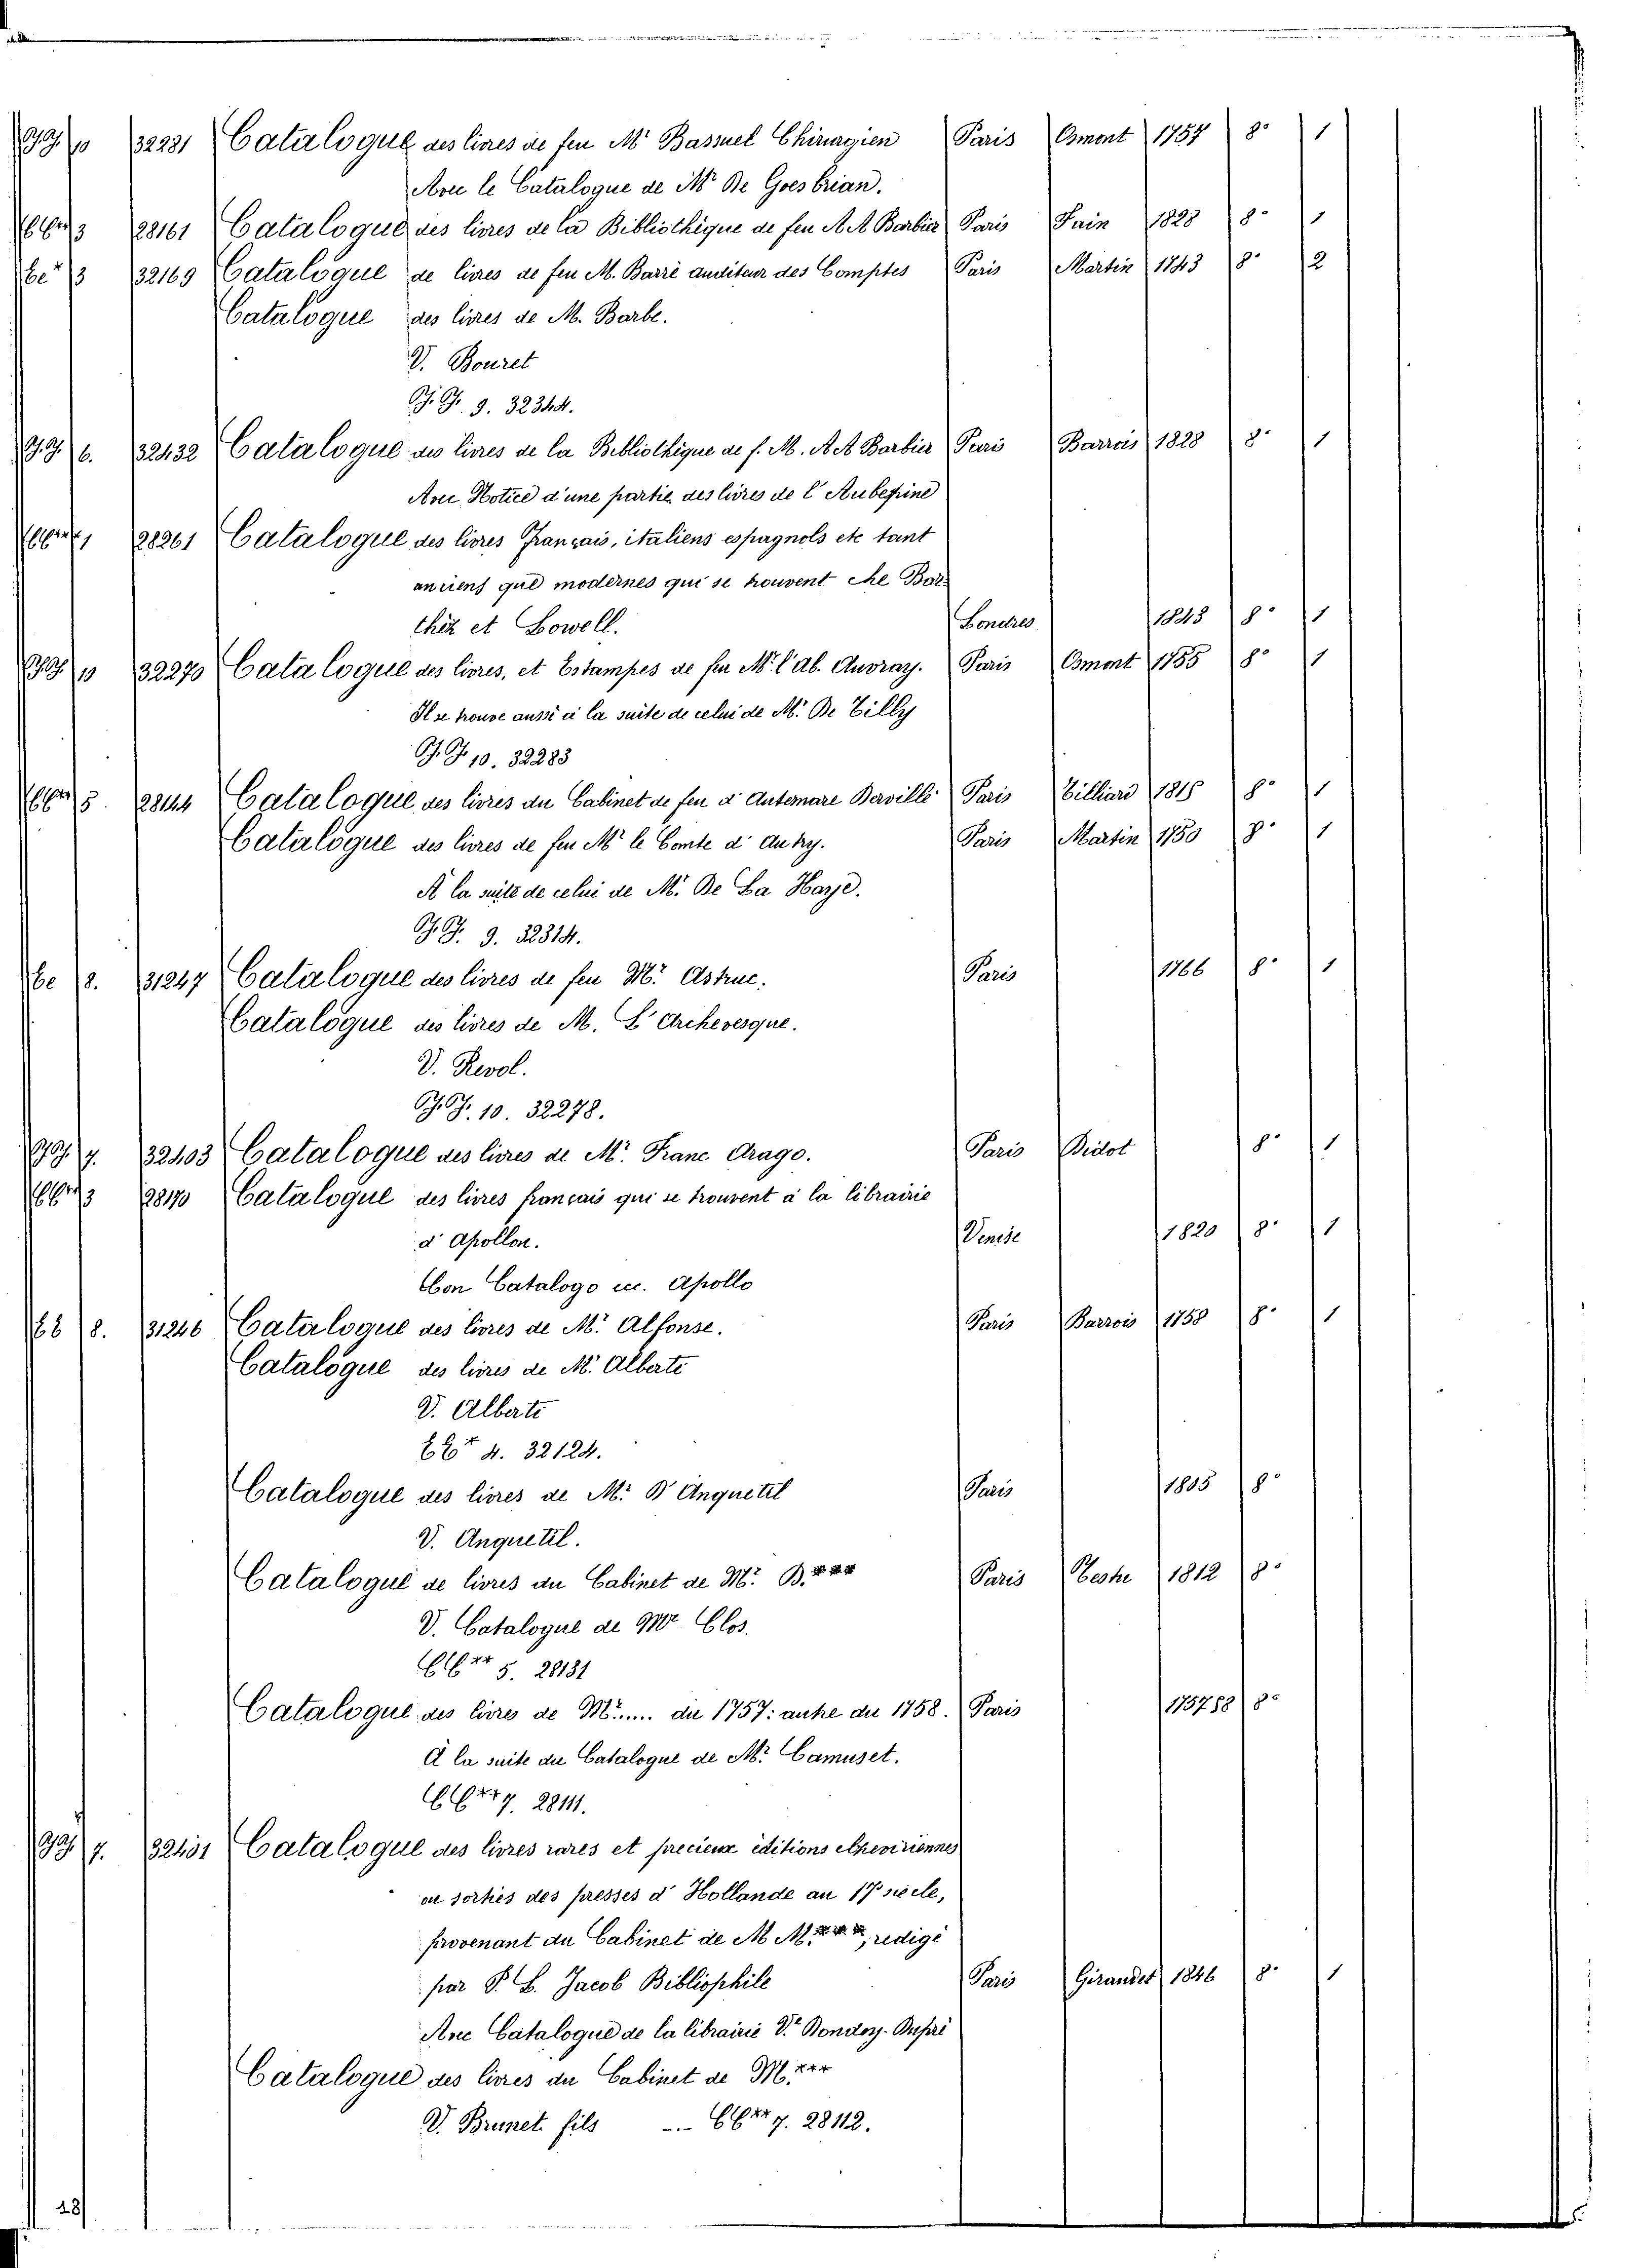 GG 10 32281 Catalogue des livres de feu Mr Bassuel Chirurgien Paris Osmont 1757 8° 1
Avec le Catalogue de Mr De Goesbrian.
3 28161 Catalogue des livres de la Bibliothèque de feu A A Barbier Paris Fain 1828 8° 1
3 32169 Catalogue de livres de feu M. Barré auditeur des Comptes Paris Martin 1743 8° 2
Catalogue des livres de M. Barbe.
V. Bouret
G. G. 9. 32344.
GG 6. 32432 Catalogue des livres de la Bibliothèque de f. M. A A Barbier Paris Barrois 1828 8° 1
Avec Notice d'une partie des livres de l'Aubespine
28261 Catalogue des livres Français, italiens espagnols etc tant
anciens que modernes qui se trouvent che Bar=
théz et Lowell. Londres 1843 8° 1
GG 10 32270 Catalogue des livres, et Estampes de feu Mr. l'ab. Auvray. Paris Osmont 1755 8° 1
Il se trouve aussi à la suite de celui de Mr. De Tilly
G. G 10. 32283
5. 28144 Catalogue des livres du Cabinet de feu d'Auternare Berville Paris Tilliard 1818 8° 1
Catalogue des livres de feu Mr le Comte d'Autry. Paris Martin 1750 8° 1
A la suite de celui de M. De La Haye.
G. G. 9. 32314.
8. 31247 Catalogue des livres de feu Mr. Astruc. Paris 1766 8° 1
Catalogue des livres de M. L'Archevesque.
V. Revol.
G. G. 10. 32278.
GG. 7. 32403 Catalogue des livres de Mr. Franc. Arago. Paris Didot 8° 1
3 28170 Catalogue des livres français qui se trouvent à la librairie
d'Apollon. Venise 1820 8° 1
Con Catalogo ecc. Apollo
8. 31246 Catalogue des livres de Mr. Alfonse. Paris Barrois 1758 8° 1
Catalogue des livres de Mr. Alberti
V. Alberti
4. 32124.
Catalogue des livres de Mr. D'Anquetil Paris 1805 8°
V. Anquetil.
Catalogue de livres du Cabinet de Mr. B.*** Paris 1812 8°
V. Catalogue de Mr. Clos.
5. 28131
Catalogue des livres de Mr..... du 1757: autre du 1758. Paris 1757.58 8°
A la suite du Catalogue de Mr. Camuset.
7. 28111.
GG 7. 32401 Catalogue des livres rares et precieux éditions elzeviriennes
ou sorties des presses d'Hollande au 17e siecle,
provenant du Cabinet de M M.***, redigé
par P. L. Jacob Bibliophile Paris Giraudet 1846 8° 1
Avec Catalogue de la librairie Ve Bondey-Dupré
Catalogue des livres du Cabinet de M.***
V. Brunet fils 7. 28112.